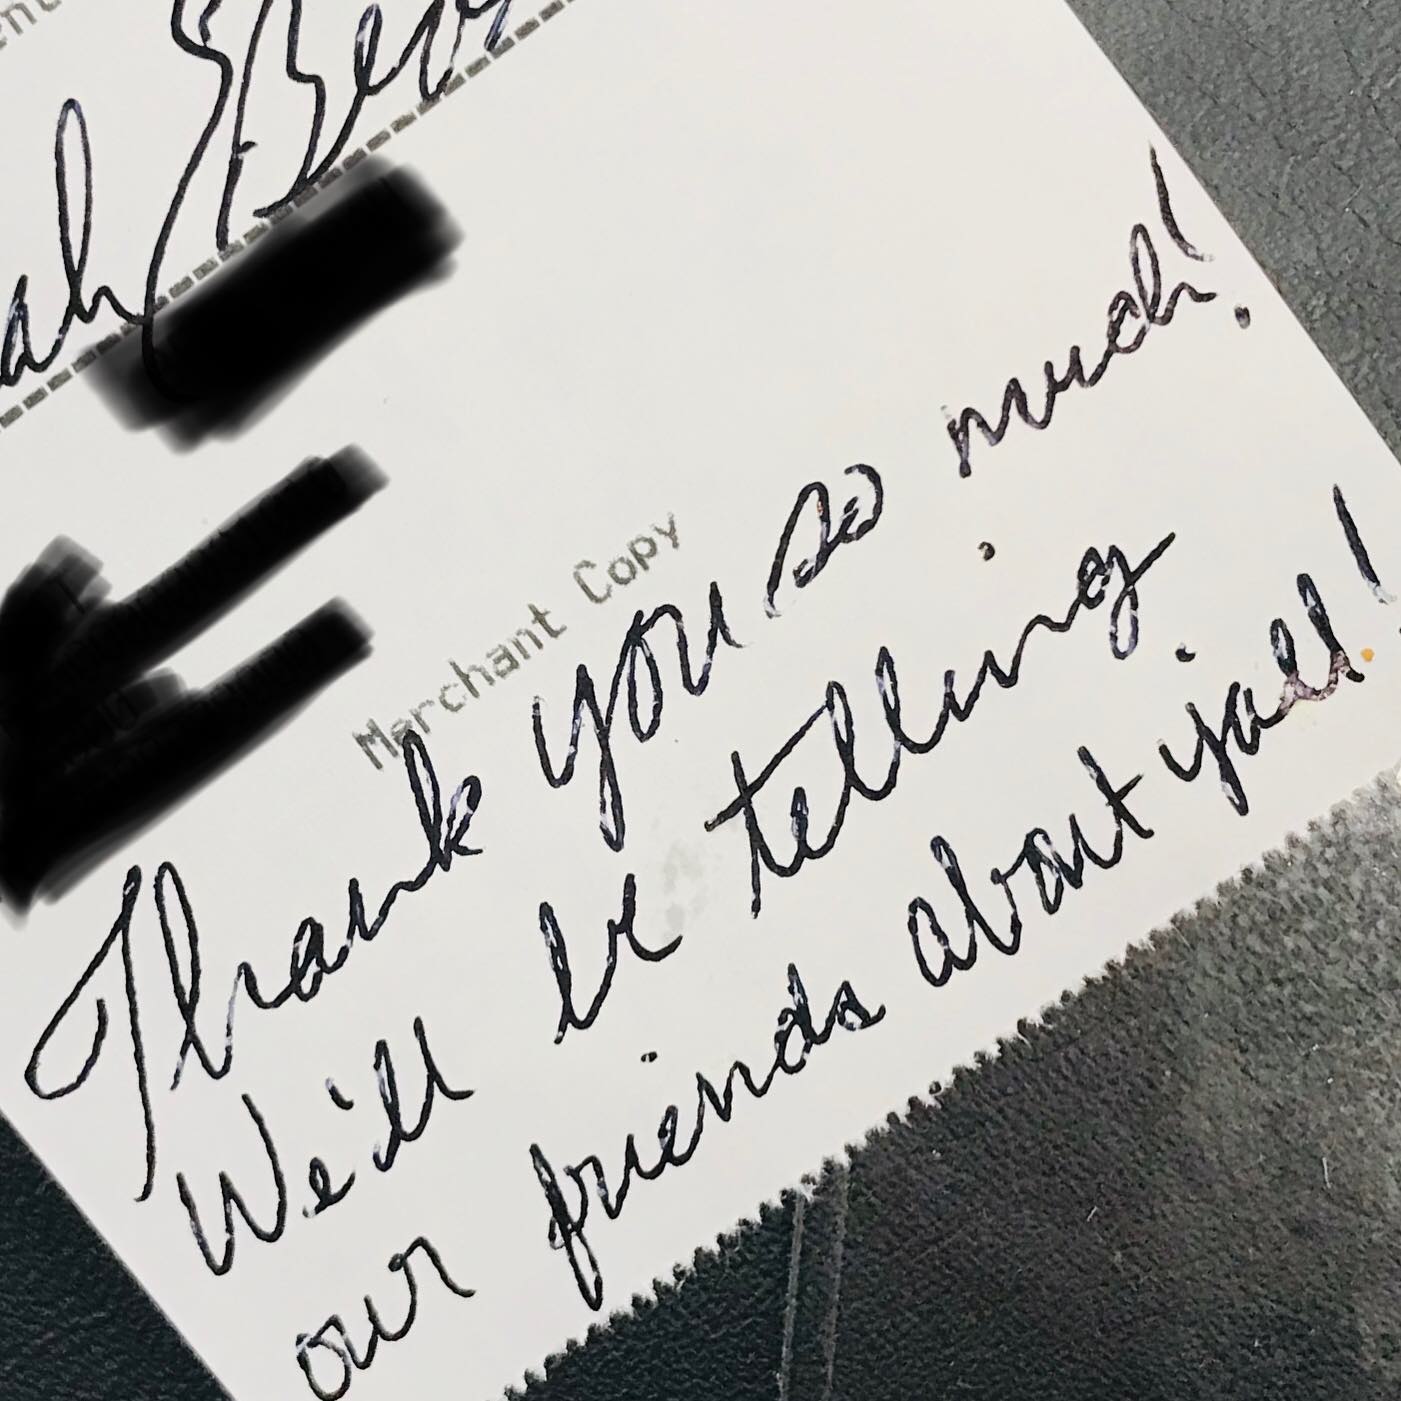 Merchant Copy
Thank you so much!
We'll be telling
our friends about y'all!